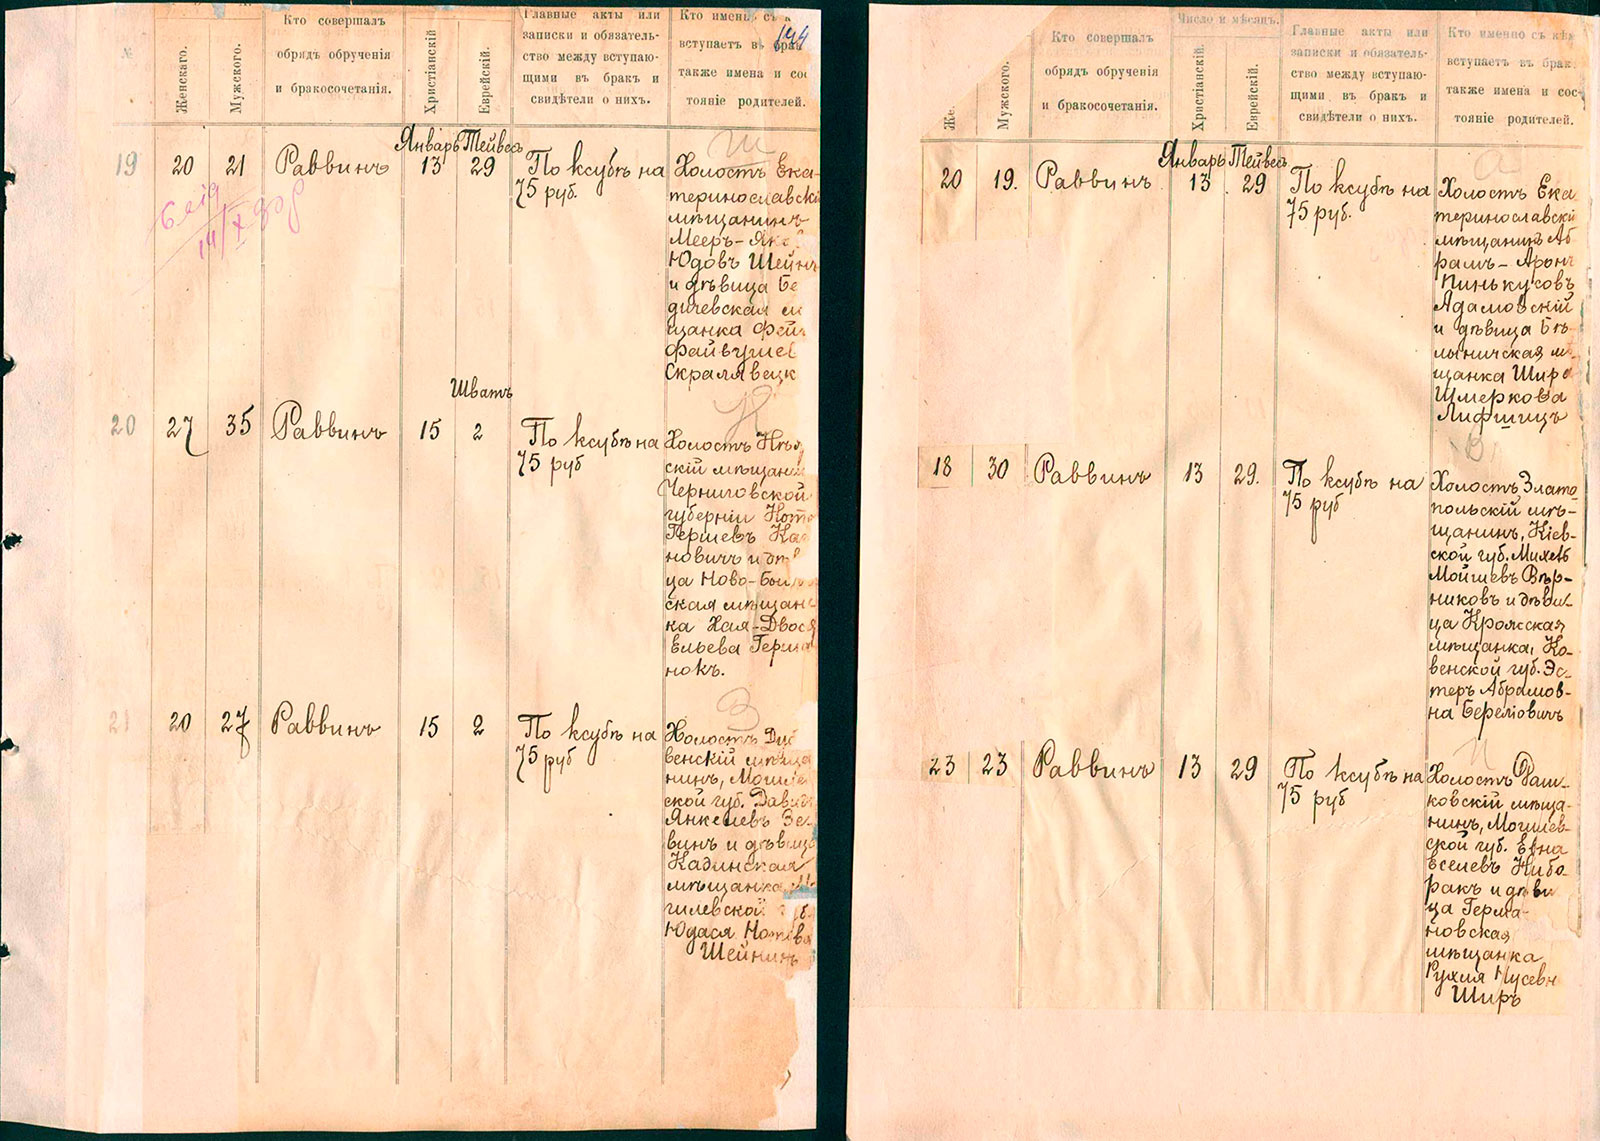 №
Женскаго.
Мужского.
Кто совершалъ
обрядъ обрученія
и бракосочетанія.
Христіанскій
Еврейскій.
Главные акты или
записки и обязатель-
ство между вступаю-
щими въ бракъ и
свидѣтели о нихъ.
Кто именно съ
вступаетъ въ брак
также имена и сос
тояніе родителей.
144
Январь Тейвесъ
19 20 21 Раввинъ 13 29 По ксубѣ на
75 руб.
Ш
Холостъ Ека-
теринославскі
мѣщанинъ
Мееръ-Янк
Юдовъ Шейнъ
и дѣвица Бе
дичевская м
щанка Фей
Файвушев
Скралявецк
14/X
Шватъ
20 27 35 Раввинъ 15 2 По ксубѣ на
75 руб
К
Холостъ Нѣж
скій мѣщанин
Черниговской
губерніи Ното
Гершевъ Ка
новичъ и дѣв
ца Ново-Бы
ская мѣщан-
ка Хая-Двося
Ельева Герша
нокъ.
21 20 27 Раввинъ 15 2 По ксубѣ на
75 руб
З
Холостъ Дуб
венскій мѣща
нинъ, Могилев
ской губ. Давидъ
Янкелевъ Зе-
винъ и дѣвица
Кадинская
мѣщанка М-
гилевской губ.
Юдася Нотова
Шейнинъ
Же
Мужского.
Кто совершалъ
обрядъ обрученія
и бракосочетанія.
Число и мѣсяцъ.
Христіанскій.
Еврейскій.
Главные акты или
записки и обязатель-
ство между вступаю-
щими въ бракъ и
свидѣтели о нихъ.
Кто именно съ кѣм
вступаетъ въ брак
также имена и сос-
тояніе родителей.
Январь Тейвесъ
20 19. Раввинъ 13 29 По ксубѣ на
75 руб.
А
Холостъ Ека
теринославскі
мѣщанинъ Аб
рамъ-Аронъ
Пинькусовъ
Адамовскій
и дѣвица Бѣ-
лыничская мѣ-
щанка Шира
Шмеркова
Лифшицъ
18 30 Раввинъ 13 29. По ксубѣ на
75 руб
В
Холостъ Злато-
польскій мѣ-
щанинъ, Кіев-
ской губ. Михель
Мойшевъ Вѣр-
никовъ и дѣви-
ца Крожская
мѣщанка, Ко-
венской губ. Эс-
теръ Абрамов-
на Береловичъ
23 23 Раввинъ 13 29 По ксубѣ на
75 руб
Н
Холостъ Даш-
ковскій мѣща-
нинъ, Могилев-
ской губ. Евна
Еселевъ Нибо-
ракъ и дѣви
ца Герма-
новская
мѣщанка
Рухля Нусевн
Ширъ